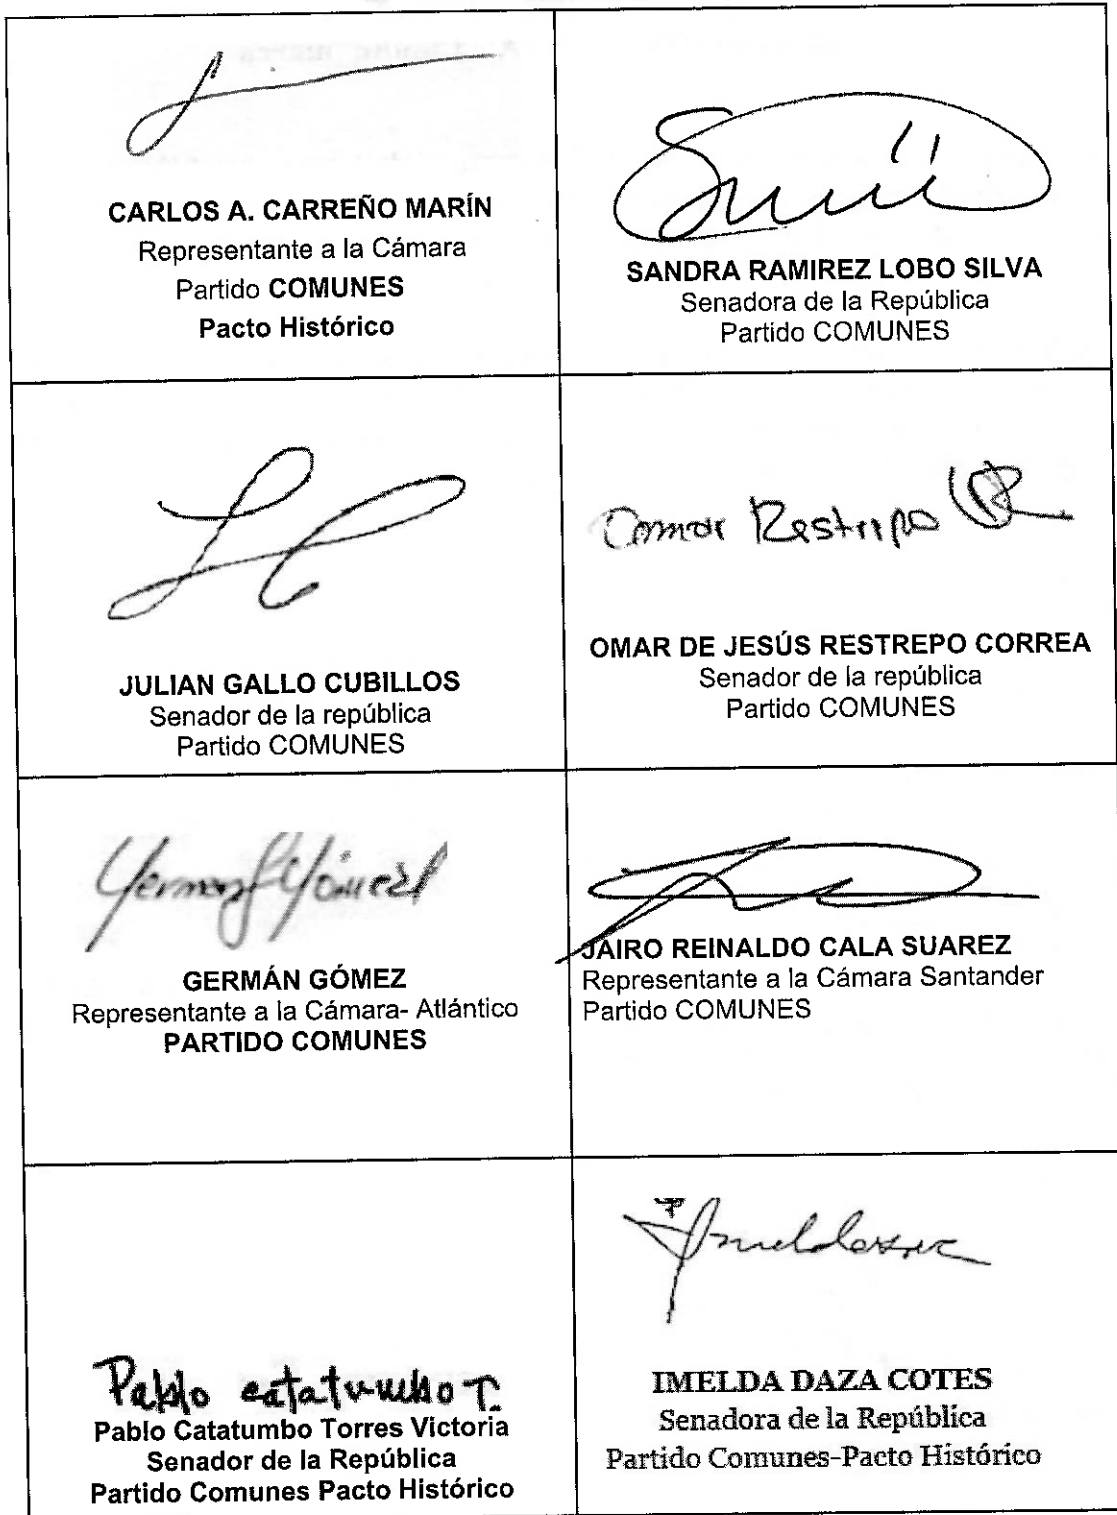 CARLOS A. CARREÑO MARÍN
Representante a la Cámara
Partido COMUNES
Pacto Histórico
SANDRA RAMIREZ LOBO SILVA
Senadora de la República
Partido COMUNES
JULIAN GALLO CUBILLOS
Senador de la república
Partido COMUNES
Omar Restrepo
OMAR DE JESÚS RESTREPO CORREA
Senador de la república
Partido COMUNES
GERMÁN GÓMEZ
Representante a la Cámara- Atlántico
PARTIDO COMUNES
JAIRO REINALDO CALA SUAREZ
Representante a la Cámara Santander
Partido COMUNES
Pablo catatumbo T.
Pablo Catatumbo Torres Victoria
Senador de la República
Partido Comunes Pacto Histórico
IMELDA DAZA COTES
Senadora de la República
Partido Comunes-Pacto Histórico